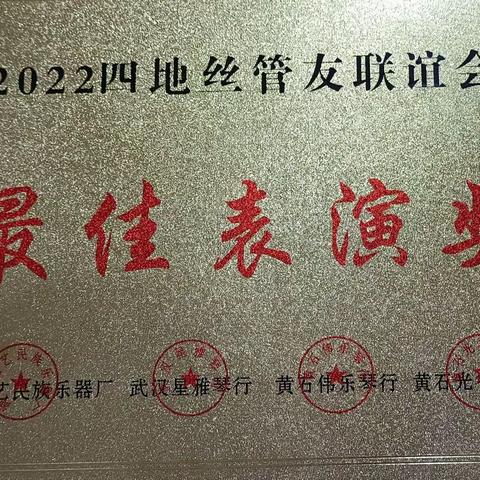 2022四地丝管友联谊会
最佳表演
艺民族乐器厂 武汉星雅琴行 黄石伟乐琴行 黄石光